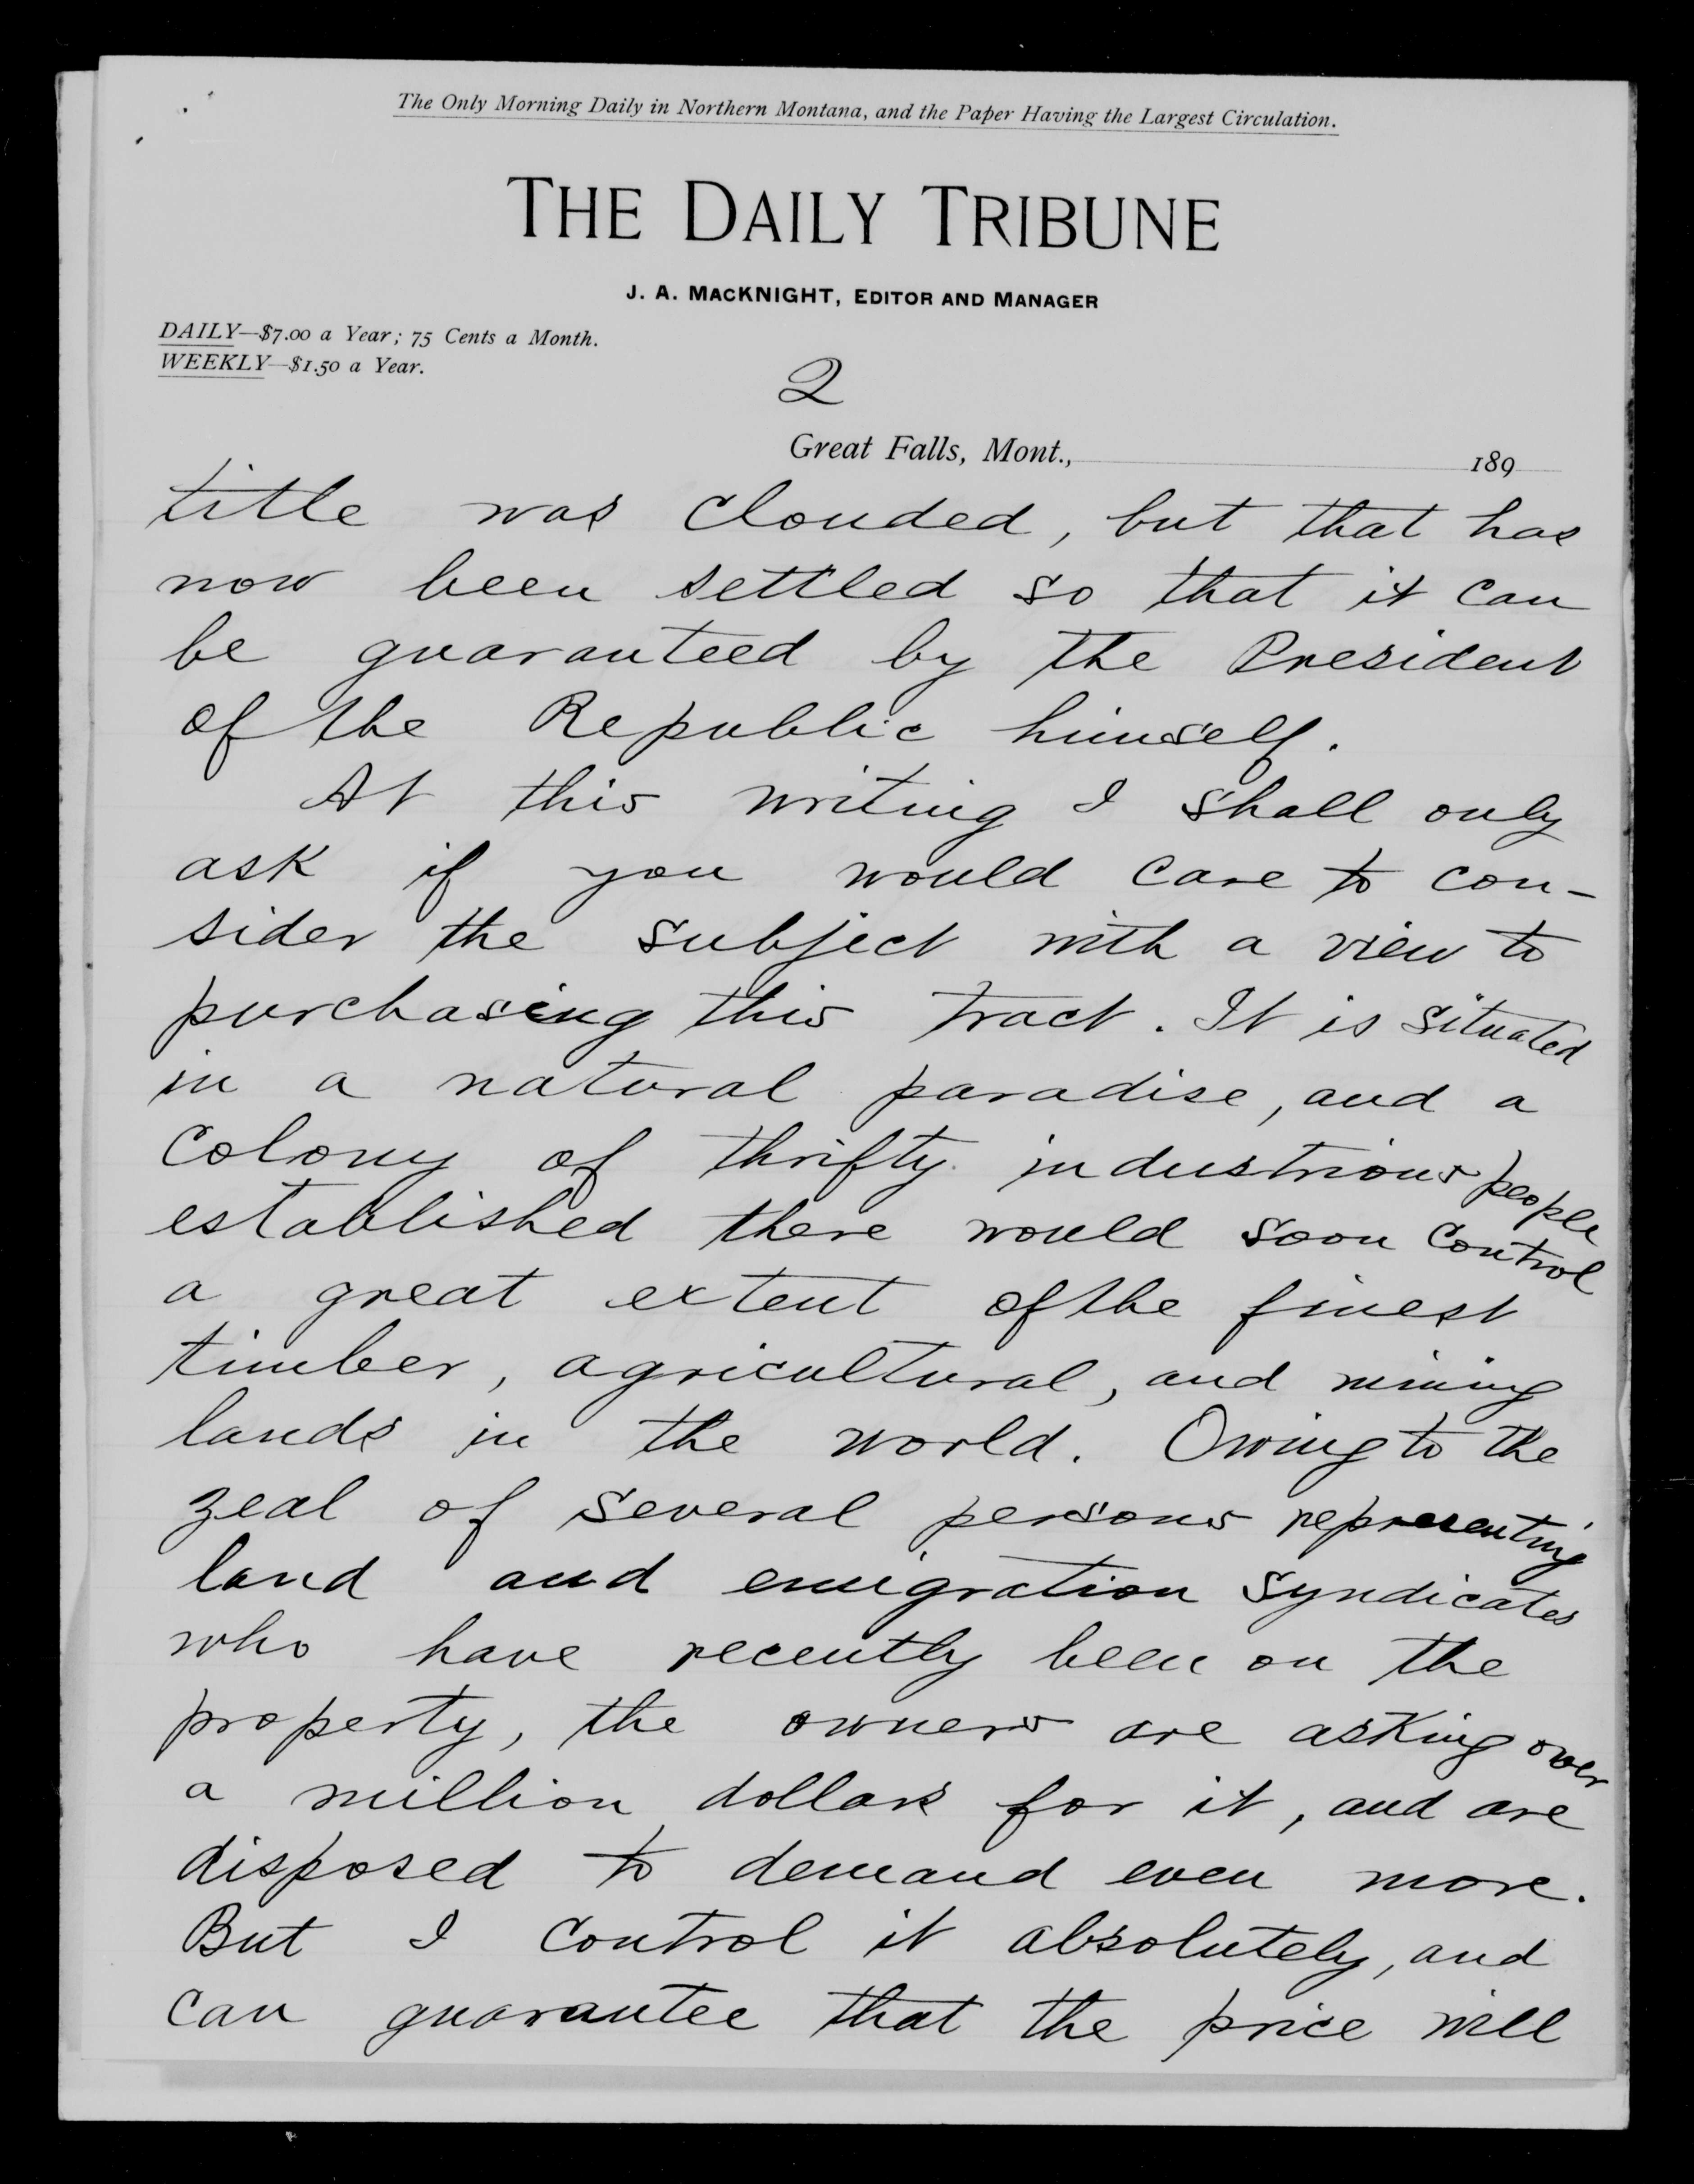 The Only Morning Daily in Northern Montana, and the Paper Having the Largest Circulation.
THE DAILY TRIBUNE
J. A. MACKNIGHT, EDITOR AND MANAGER
DAILY—$7.00 a Year; 75 Cents a Month.
WEEKLY—$1.50 a Year.
2
Great Falls, Mont., 189
title was clouded, but that has
now been settled so that it can
be guaranteed by the President
of the Republic himself.
At this writing I shall only
ask if you would care to con-
sider the subject with a view to
purchasing this tract. It is situated
in a natural paradise, and a
colony of thrifty industrious people
established there would soon control
a great extent of the finest
timber, agricultural, and mining
lands in the world. Owing to the
zeal of several persons representing
land and emigration syndicates
who have recently been on the
property, the owners are asking over
a million dollars for it, and are
disposed to demand even more.
But I control it absolutely, and
can guarantee that the price will